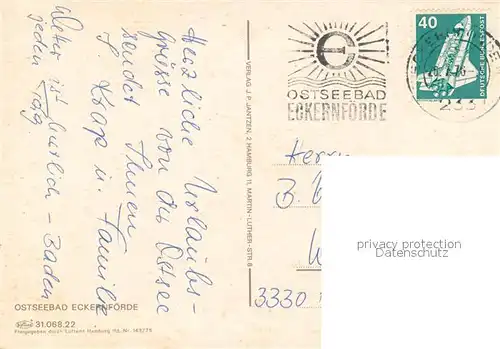 Herzliche Urlaubs-
Grüsse von der Ostsee
sendet Ihnen
Familie
Weter ist herrlich - Baden
jeden Tag
OSTSEEBAD ECKERNFÖRDE
31.068.22
Freigegeben durch Luftamt Hamburg
VERLAG J. P. JANTZEN, 2 HAMBURG 11, MARTIN-LUTHER-STR. 6
OSTSEEBAD
ECKERNFÖRDE
40
DEUTSCHE BUNDESPOST
233
Herrn
B.
3330
privacy protection
Datenschutz